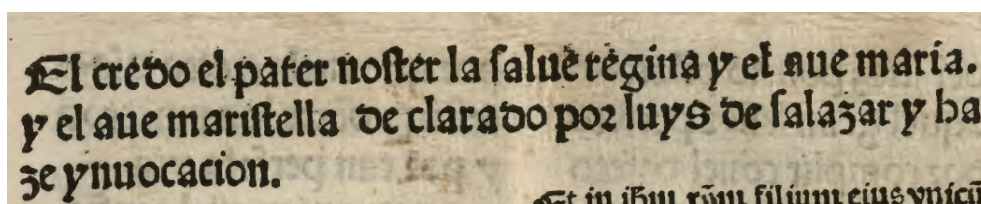 El credo el pater noſter la ſalue regina y el aue maria.
y el aue mariſtella de clarado por luys de ſalazar y ha
ze ynuocacion.
Et in ihm̄ xp̄m filium eius vnicū